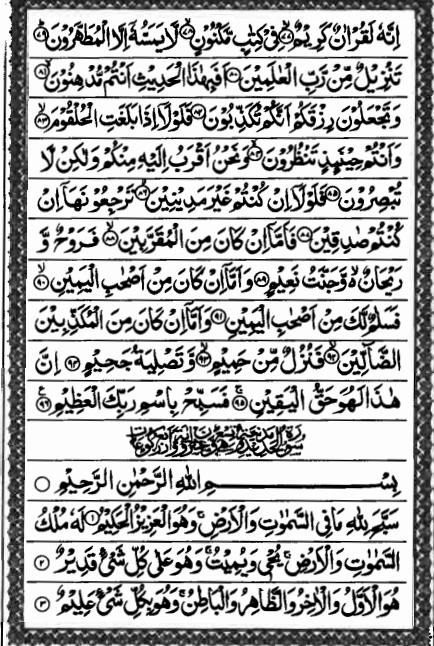 اِنَّهٗ لَقُرْاٰنٌ كَرِيْمٌ ﴿٧٧﴾ فِيْ كِتٰبٍ مَّكْنُوْنٍ ﴿٧٨﴾ لَّا يَمَسُّهٗٓ اِلَّا الْمُطَهَّرُوْنَ ﴿٧٩﴾
تَنْزِيْلٌ مِّنْ رَّبِّ الْعٰلَمِيْنَ ﴿٨٠﴾ اَفَبِهٰذَا الْحَدِيْثِ اَنْتُمْ مُّدْهِنُوْنَ ﴿٨١﴾
وَتَجْعَلُوْنَ رِزْقَكُمْ اَنَّكُمْ تُكَذِّبُوْنَ ﴿٨٢﴾ فَلَوْلَآ اِذَا بَلَغَتِ الْحُلْقُوْمَ ﴿٨٣﴾
وَاَنْتُمْ حِيْنَئِذٍ تَنْظُرُوْنَ ﴿٨٤﴾ وَنَحْنُ اَقْرَبُ اِلَيْهِ مِنْكُمْ وَلٰكِنْ لَّا
تُبْصِرُوْنَ ﴿٨٥﴾ فَلَوْلَآ اِنْ كُنْتُمْ غَيْرَ مَدِيْنِيْنَ ﴿٨٦﴾ تَرْجِعُوْنَهَآ اِنْ
كُنْتُمْ صٰدِقِيْنَ ﴿٨٧﴾ فَاَمَّآ اِنْ كَانَ مِنَ الْمُقَرَّبِيْنَ ﴿٨٨﴾ فَرَوْحٌ وَّ
رَيْحَانٌ ەۙ وَّجَنَّتُ نَعِيْمٍ ﴿٨٩﴾ وَاَمَّآ اِنْ كَانَ مِنْ اَصْحٰبِ الْيَمِيْنِ ﴿٩٠﴾
فَسَلٰمٌ لَّكَ مِنْ اَصْحٰبِ الْيَمِيْنِ ﴿٩١﴾ وَاَمَّآ اِنْ كَانَ مِنَ الْمُكَذِّبِيْنَ
الضَّآلِّيْنَ ﴿٩٢﴾ فَنُزُلٌ مِّنْ حَمِيْمٍ ﴿٩٣﴾ وَّتَصْلِيَةُ جَحِيْمٍ ﴿٩٤﴾ اِنَّ
هٰذَا لَهُوَ حَقُّ الْيَقِيْنِ ﴿٩٥﴾ فَسَبِّحْ بِاسْمِ رَبِّكَ الْعَظِيْمِ ﴿٩٦﴾
بِسْمِ اللّٰهِ الرَّحْمٰنِ الرَّحِيْمِ
سَبَّحَ لِلّٰهِ مَا فِي السَّمٰوٰتِ وَالْاَرْضِ ۚ وَهُوَ الْعَزِيْزُ الْحَكِيْمُ ﴿١﴾ لَهٗ مُلْكُ
السَّمٰوٰتِ وَالْاَرْضِ ۚ يُحْيٖ وَيُمِيْتُ ۚ وَهُوَ عَلٰى كُلِّ شَيْءٍ قَدِيْرٌ ﴿٢﴾
هُوَ الْاَوَّلُ وَالْاٰخِرُ وَالظَّاهِرُ وَالْبَاطِنُ ۚ وَهُوَ بِكُلِّ شَيْءٍ عَلِيْمٌ ﴿٣﴾